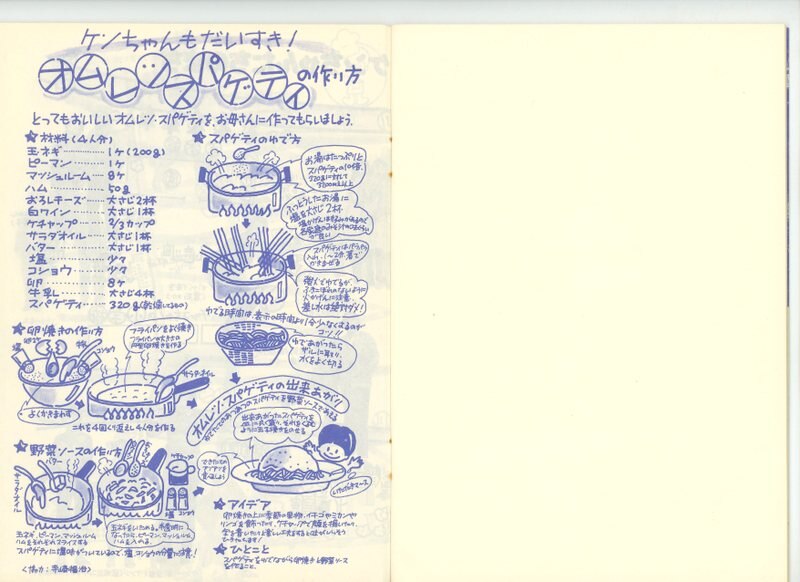 ケンちゃんもだいすき!
オムレツスパゲティの作り方
とってもおいしいオムレツ・スパゲティを、お母さんに作ってもらいましょう。
★材料(4人分)
玉ネギ…………1ケ(200g)
ピーマン…………1ケ
マッシュルーム……8ケ
ハム…………50g
おろしチーズ……大さじ2杯
白ワイン…………大さじ1杯
ケチャップ………2/3カップ
サラダオイル……大さじ1杯
バター…………大さじ1杯
塩…………少々
コショウ…………少々
卵…………8ケ
牛乳…………大さじ4杯
スパゲティ………320g(乾燥したもの)
★スパゲティのゆで方
お湯はたっぷりと
スパゲティの10倍、
320gに対して
3200cc以上
ふっとうしたお湯に
塩を大さじ2杯
スパゲティはパラッと
入れ、1〜2分箸で
かきまぜる
強火でゆでるが、
ふきこぼれのないように
火かげんに注意、
差し水は絶対ダメ!
ゆでる時間は、表示の時間より1分少なくするのが
コツ!!
ゆであがったら
ザルに取り、
水をよく切る
★卵焼きの作り方
塩
牛乳
コショウ
よくかきまわす
フライパンをよく焼き
サラダ・オイル
これを4回くり返し4人分を作る
★野菜ソースの作り方
バター
サラダ・オイル
玉ネギ、ピーマン、マッシュルーム
ハムをそれぞれスライスする
玉ネギをいためる。半透明に
なったらピーマン、マッシュルーム
ハムを入れる。
塩 コショウ
スパゲティに塩味がついているので、塩、コショウの分量に注意!
オムレツ・スパゲティの出来あがり
ゆでたてのあつあつのスパゲティを野菜ソースであえる
出来あがったスパゲティを
皿に丸く盛り、それをくるむ
ように玉子焼きをのせる
いただきマース
★アイデア
卵焼きの上に季節の果物、イチゴやミカンや
リンゴを飾ったり、ケチャップで顔を描いたり、
★ひとこと
スパゲティをゆでながら卵焼きと野菜ソース
を作ること。